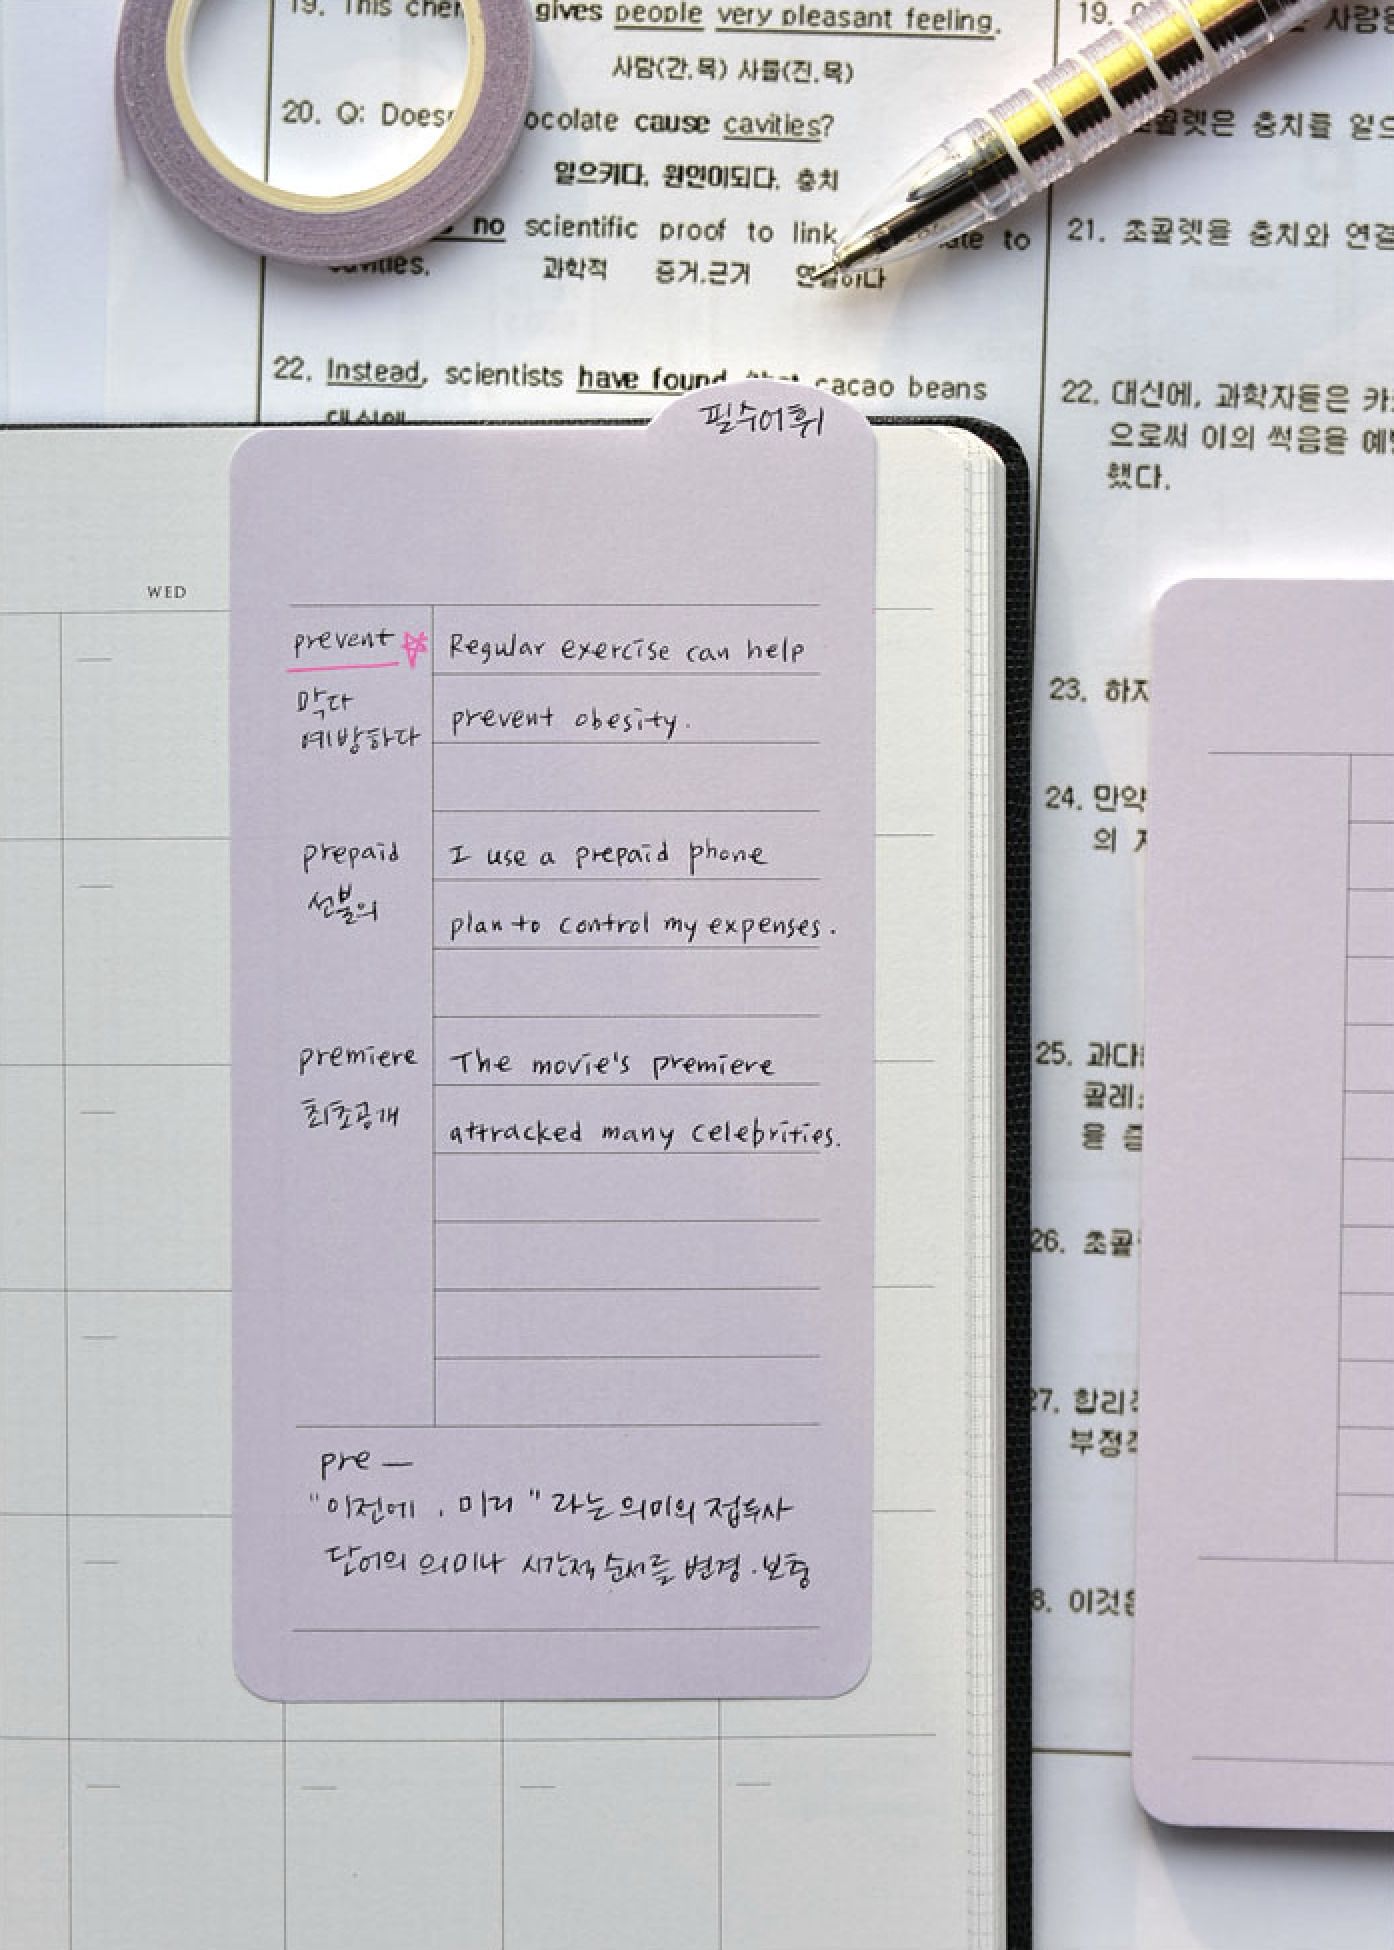 19. This gives people very pleasant feeling.
사람(간.목) 사물(직.목)
20. Q: Does cause cavities?
일으키다. 원인이되다. 충치
no scientific proof to link to
cavities.
과학적 증거.근거
22. Instead, scientists have found that cacao beans
대신에
19.
초콜렛은 충치를
21. 초콜렛을 충치와
22. 대신에, 과학자들은
으로써 이의 썩음을
했다.
23.
24.
의
25.
26.
27.
필수어휘
WED
prevent
막다
예방하다
Regular exercise can help
prevent obesity.
prepaid
선불의
I use a prepaid phone
plan to control my expenses.
premiere
최초공개
The movie's premiere
attracked many celebrities.
pre —
"이전에, 미리" 라는 의미의 접두사
단어의 의미나 시간적 순서를 변경·보충